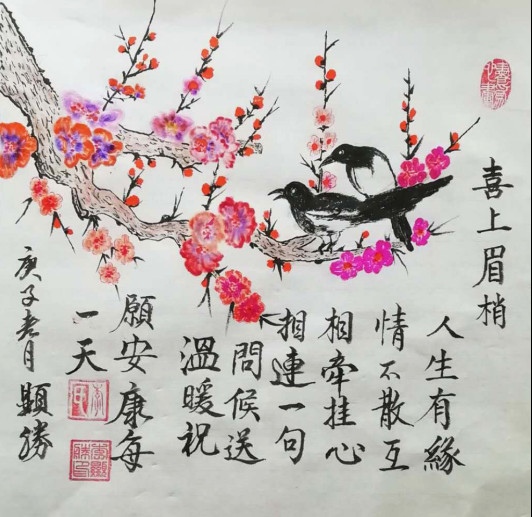 喜上眉梢
人生有緣
情不散互
相牽挂心
相連一句
問候送
溫暖祝
願安康每
一天
庚子春月
顯勝